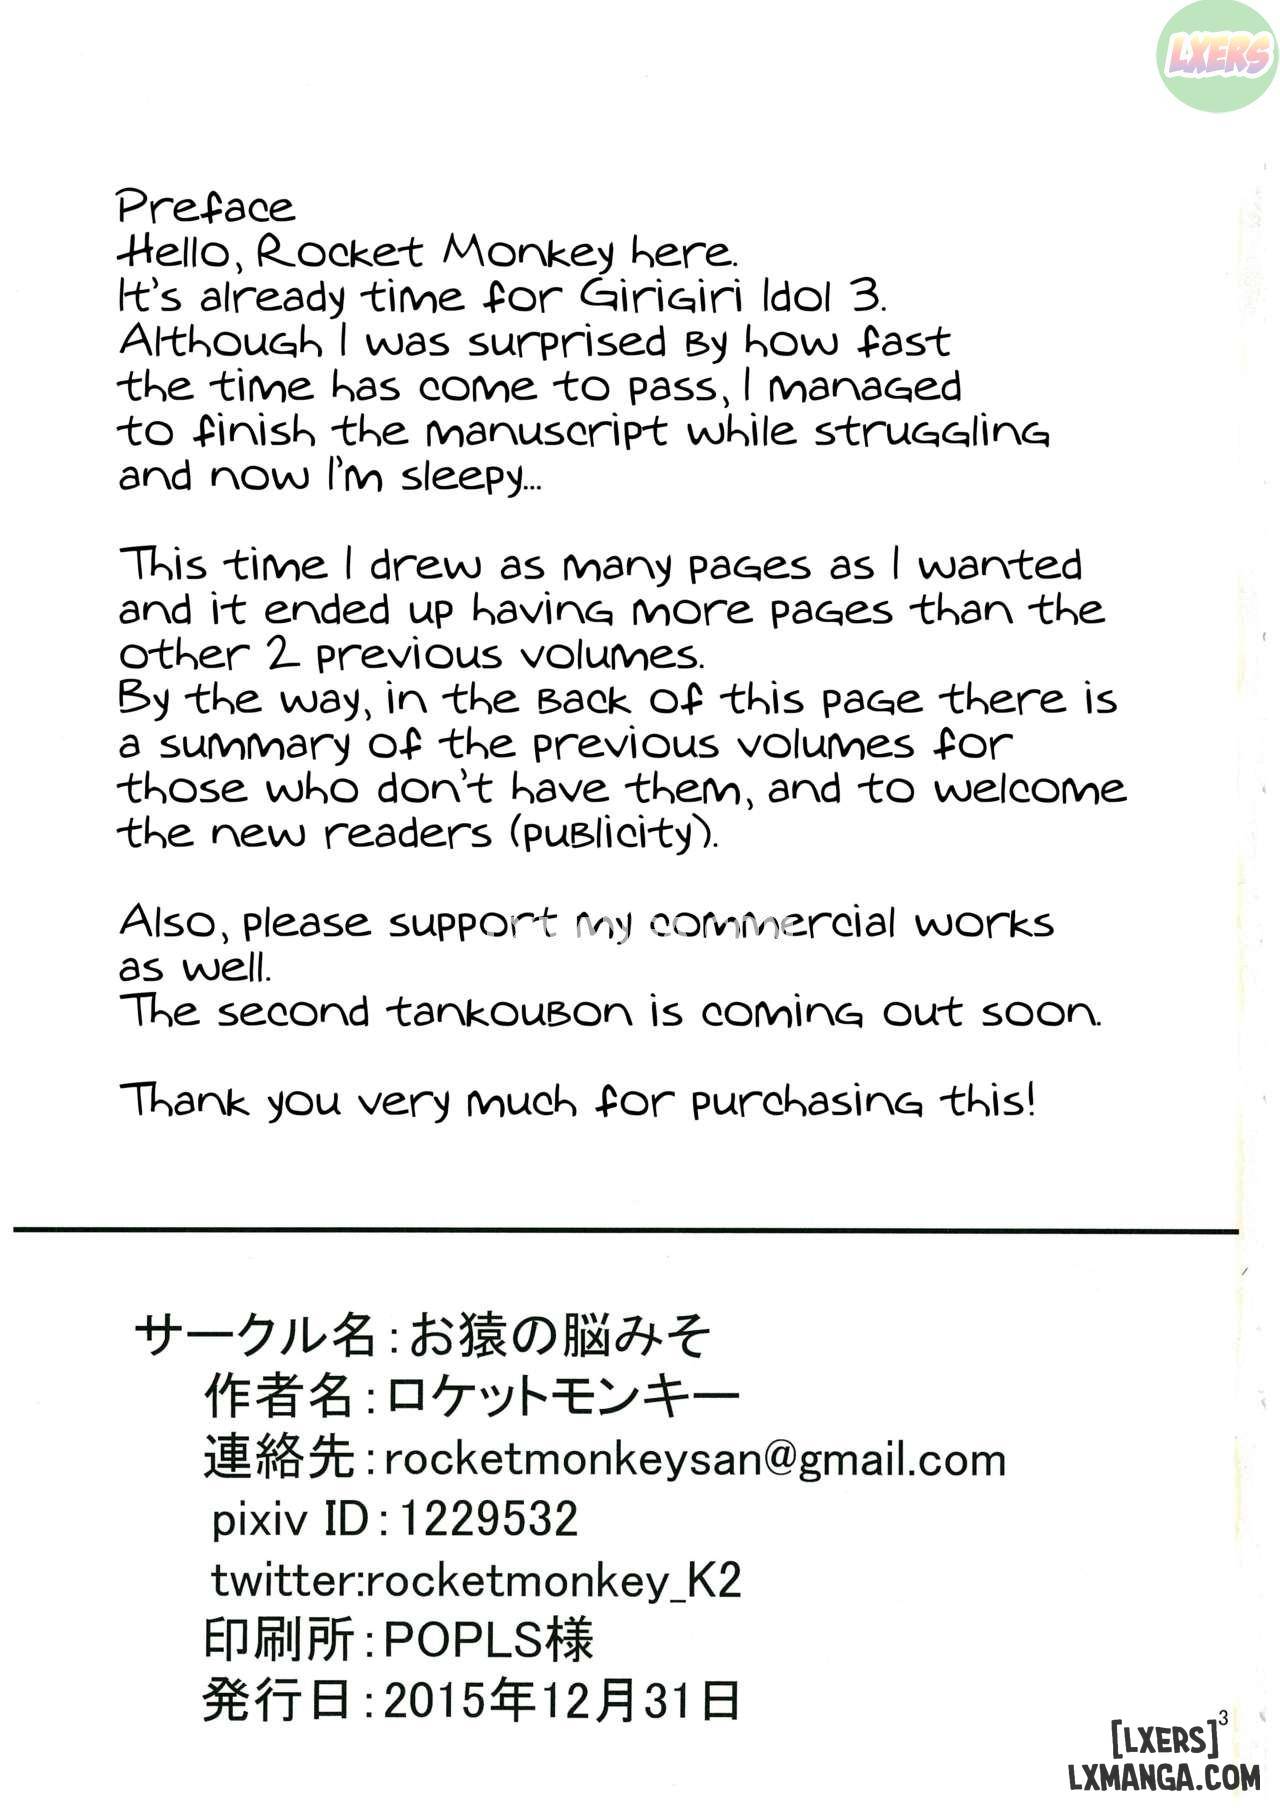 LXERS
Preface
Hello, Rocket Monkey here.
It's already time for Girigiri Idol 3.
Although I was surprised by how fast
the time has come to pass, I managed
to finish the manuscript while struggling
and now I'm sleepy...
This time I drew as many pages as I wanted
and it ended up having more pages than the
other 2 previous volumes.
By the way, in the back of this page there is
a summary of the previous volumes for
those who don't have them, and to welcome
the new readers (publicity).
Also, please support my commercial works
as well.
The second tankoubon is coming out soon.
Thank you very much for purchasing this!
サークル名：お猿の脳みそ
作者名：ロケットモンキー
連絡先：rocketmonkeysan@gmail.com
pixiv ID：1229532
twitter:rocketmonkey_K2
印刷所：POPLS様
発行日：2015年12月31日
3
[LXERS]
LXMANGA.COM